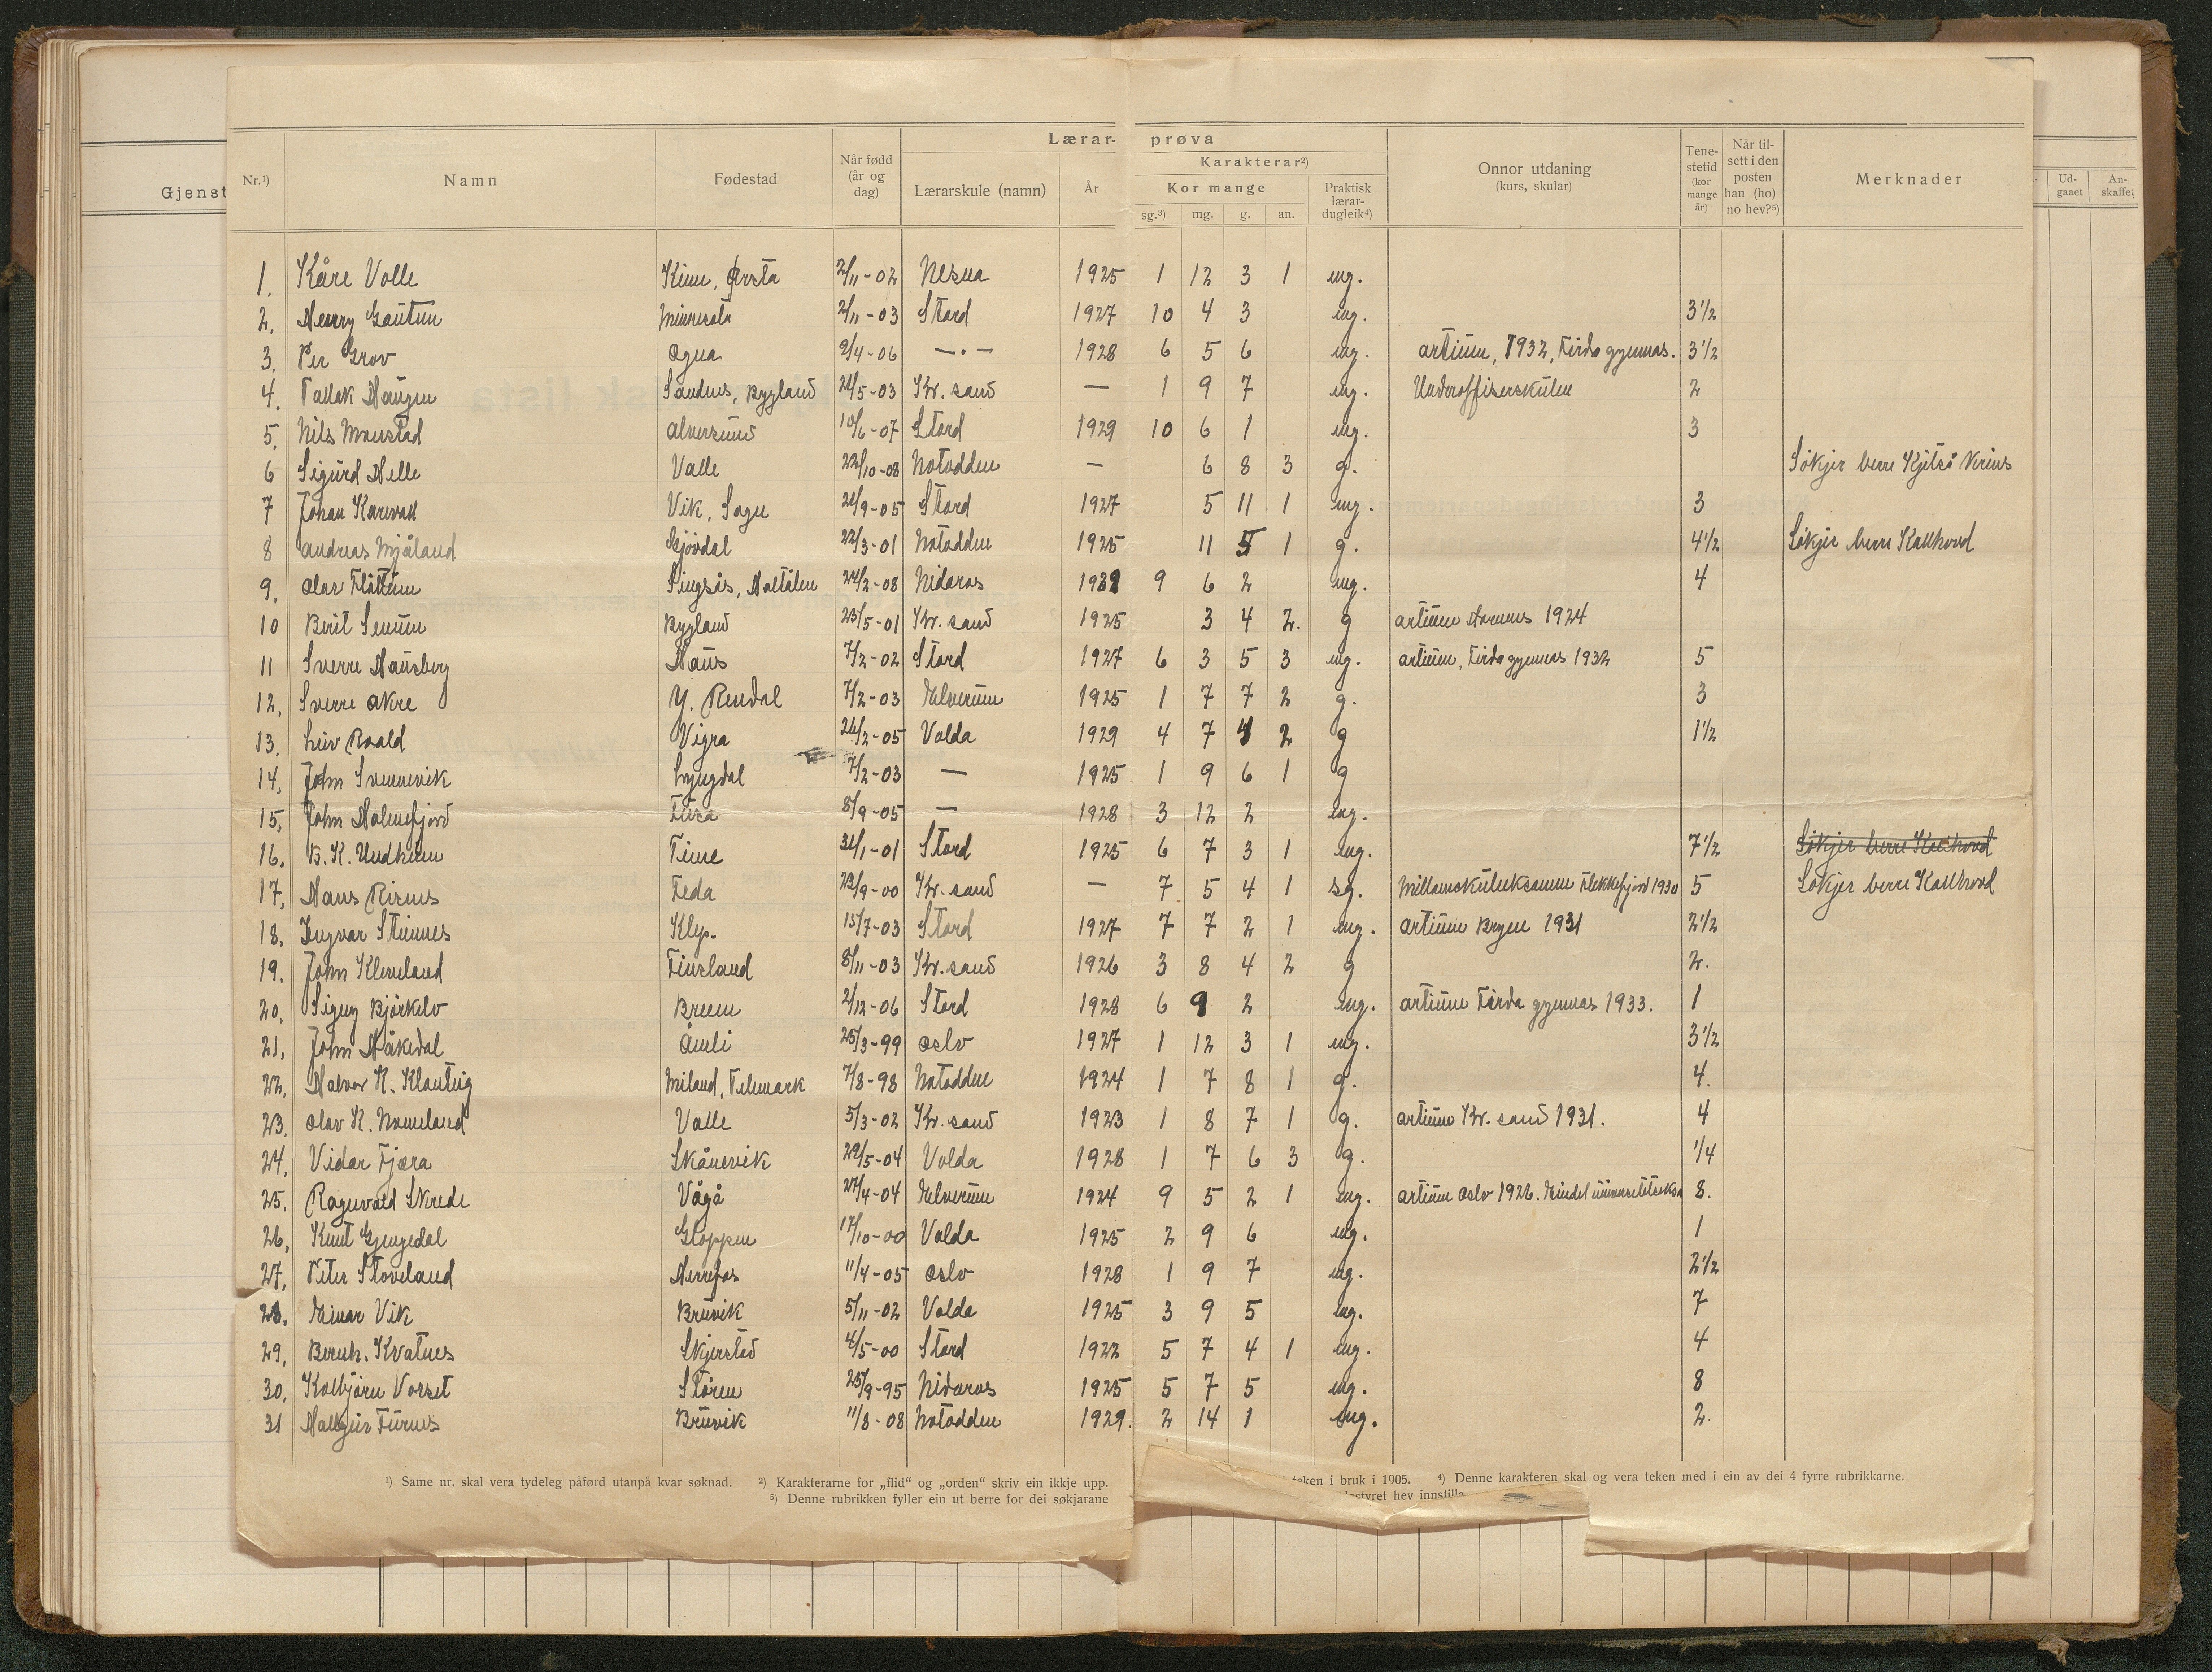 Gjenst
Lærar-prøva
Nr.¹) Namn Fødestad Når fødd (år og dag) Lærarskule (namn) År Karakterar²) Kor mange sg.³) mg. g. an. Praktisk lærar-dugleik⁴) Onnor utdaning (kurs, skular) Tene-stetid (kor mange år) Når til-sett i den posten han (ho) no hev?⁵) Merknader
Ud-gaaet An-skaffet
1. Kåre Volle Ørsta 2/11-02 Nesna 1925 1 12 3 1 mg.
2. Henry Gautun Minnesota 2/11-03 Stord 1927 10 4 3 mg. 3 1/2
3. Per Grov Ogna 9/4-06 —"— 1928 6 5 6 mg. artium, 1932, Firda gymnas. 3 1/2
4. Tallak Haugen Sandnes, Bygland 21/5-03 Kr. sand — 1 9 7 mg. Underoffiserskulen 2
5. Nils Alversund 10/6-07 Stord 1929 10 6 1 mg. 3
6 Sigurd Helle Valle 22/10-08 Notodden — 6 8 3 g. Søkjer berre
7 Johan Karevoll Vik, Sogn 21/9-05 Stord 1927 5 11 1 mg. 3
8 Andreas Mjåland Gjøvdal 22/3-01 Notodden 1925 11 5 1 g. 4 1/2 Søkjer berre Kallhovd
9. Olav Flåttum Singsås, Haltdalen 24/2-08 Nidaros 1932 9 6 2 mg. 4
10 Berit Senum Bygland 23/5-01 Kr. sand 1925 3 4 2. g artium Hornnes 1924
11 Sverre Hausberg Haus 7/2-02 Stord 1927 6 3 5 3 mg. artium, Firda gymnas 1932 5
12. Sverre Akre Y. Rendal 7/2-03 Elverum 1925 1 7 7 2 g. 3
13. Liv Roald Vigra 26/2-05 Volda 1929 4 7 4 2 g 1 1/2
14. John Svennevik Lyngdal 7/2-03 — 1925 1 9 6 1 g
15. John Holmefjord Fusa 8/9-05 — 1928 3 12 2 mg.
16. B. K. Undheim Time 31/1-01 Stord 1925 6 7 3 1 mg. 7 1/2 Søkjer berre Kallhovd
17. Hans Risnes Feda 23/9-00 Kr. sand — 7 5 4 1 sg. Millomskuleeksamen Flekkefjord 1930 5 Søkjer berre Kallhovd
18. Ingvar Stimnes Klep. 15/7-03 Stord 1927 7 7 2 1 mg. artium Bryne 1931 2 1/2
19. John Kleveland Finsland 8/11-03 Kr. sand 1926 3 8 4 2 g 2.
20. Signy Bjørkelo Breim 2/12-06 Stord 1928 6 9 2 mg. artium Firda gymnas 1933. 1
21. John Håkedal Åmli 25/3-99 Oslo 1927 1 12 3 1 mg. 3 1/2
22. Halvor K. Miland, Telemark 7/8-98 Notodden 1924 1 7 8 1 g. 4.
23. Olav K. Nomeland Valle 5/3-02 Kr. sand 1923 1 8 7 1 g. artium Kr. sand 1931. 4
24. Vidar Fjæra Skånevik 29/5-04 Volda 1928 1 7 6 3 g. 1/4
25. Ragnvald Skrede Vågå 27/4-04 Elverum 1924 9 5 2 1 mg. artium Oslo 1926. 8.
26. Knut Gjengedal Gloppen 17/10-00 Volda 1925 2 9 6 mg. 1
27. Peter Stoveland Herrefos 11/4-05 Oslo 1928 1 9 7 mg. 2 1/2
28. Einar Vik Bruvik 5/11-02 Volda 1925 3 9 5 mg. 7
29. Bernh. Kvatnes Skjerstad 4/5-00 Stord 1922 5 7 4 1 mg. 4
30. Kolbjørn Vorset Støren 25/9-95 Nidaros 1925 5 7 5 mg. 8
31 Hallgeir Furnes Bruvik 11/8-08 Notodden 1929. 2 14 1 mg. 2.
¹) Same nr. skal vera tydeleg påførd utanpå kvar søknad. ²) Karakterarne for „flid“ og „orden“ skriv ein ikkje upp. teken i bruk i 1905. ⁴) Denne karakteren skal og vera teken med i ein av dei 4 fyrre rubrikkarne.
⁵) Denne rubrikken fyller ein ut berre for dei søkjarane styret hev innstilla